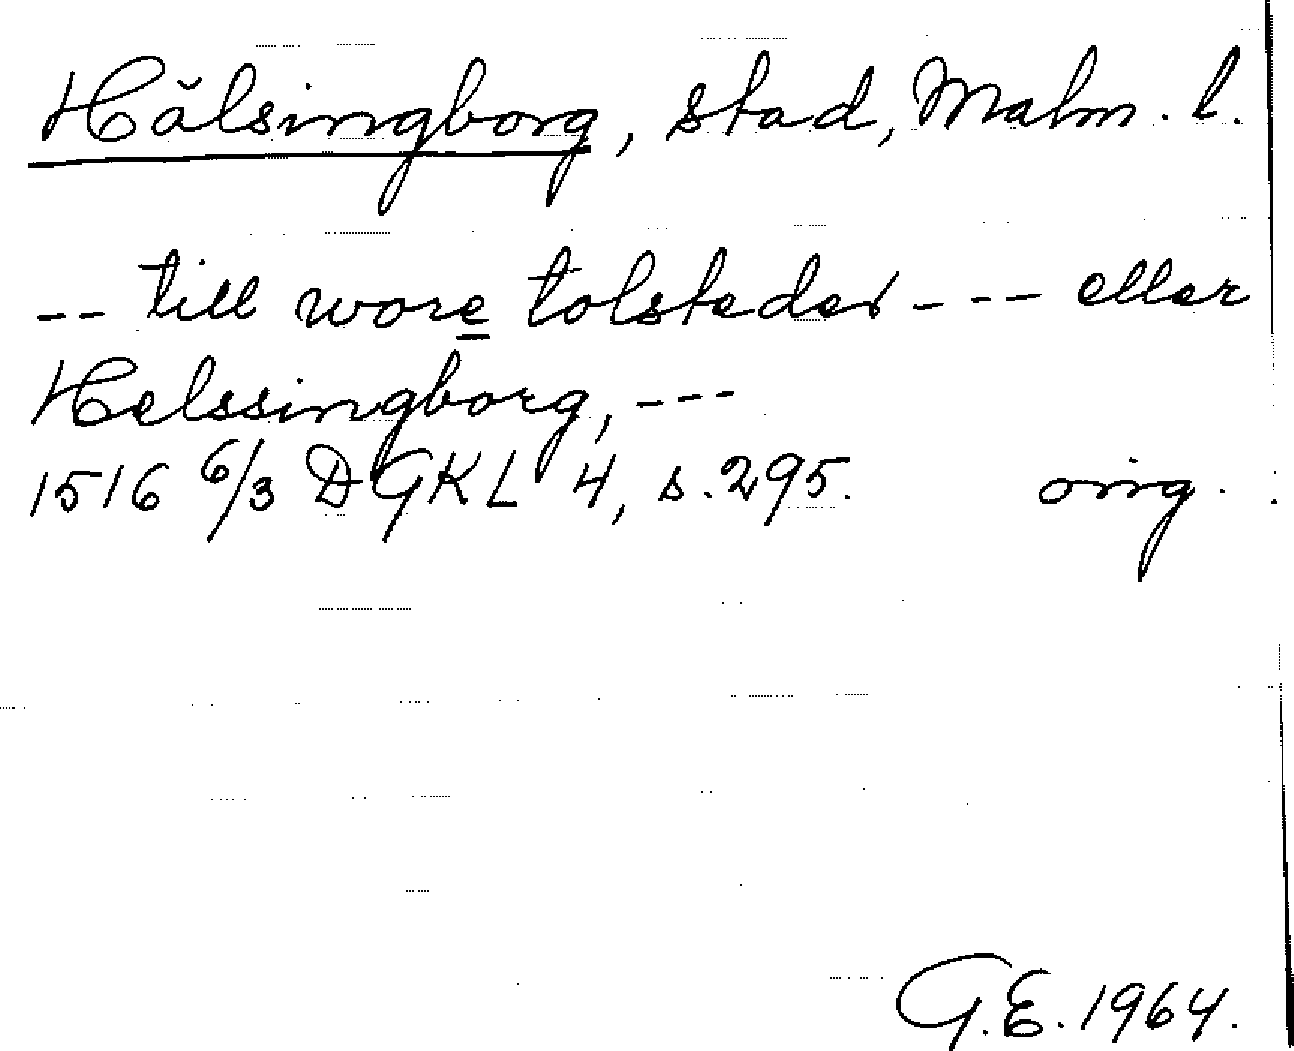 Hälsingborg, stad, Malm. l.
-- till wore tolsteder --- eller
Helssingborg, ---
1516 6/3 DGKL 4, s. 295. orig.
G.E. 1964.